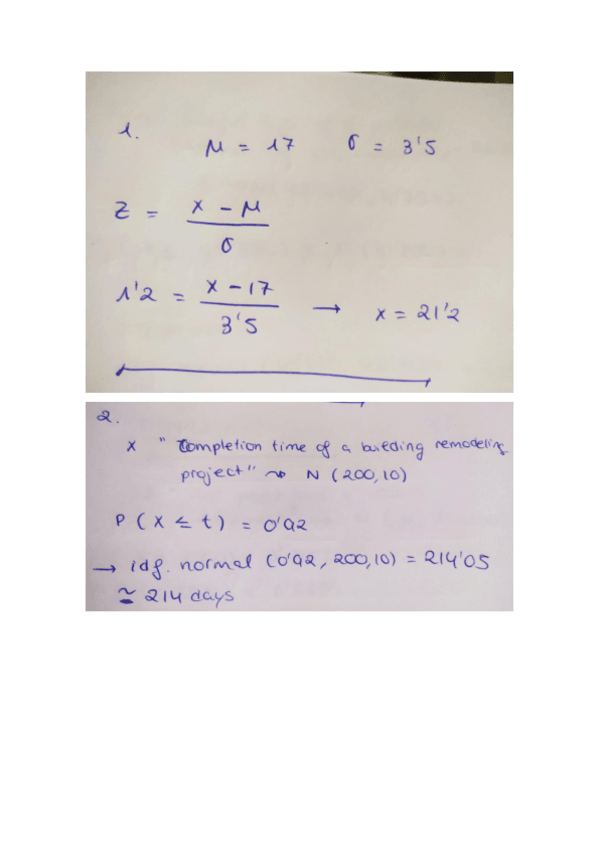 1.
μ = 17 σ = 3'5
z = x - μ / σ
1'2 = x - 17 / 3'5 → x = 21'2
2.
x "Completion time of a building remodeling
project" ~> N (200,10)
P (X ≤ t) = 0'92
→ idf. normal (0'92, 200,10) = 214'05
≅ 214 days